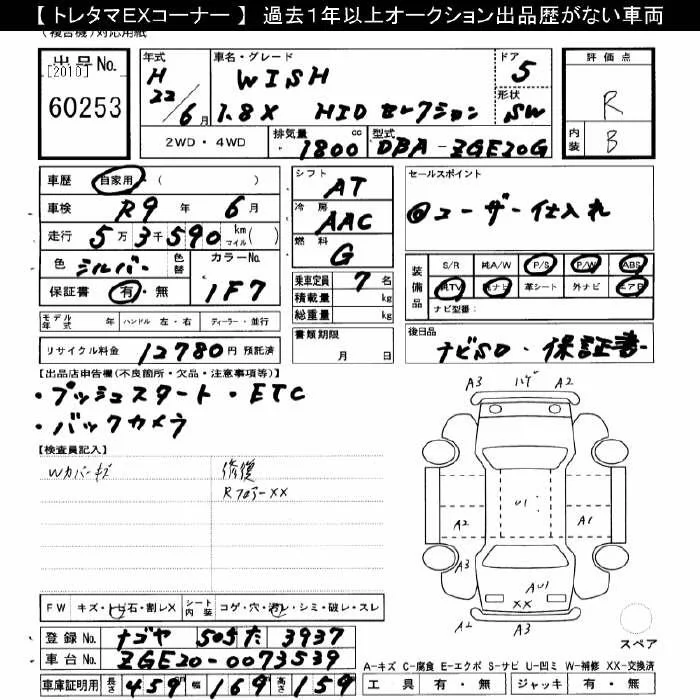 【トレタマEXコーナー】 過去1年以上オークション出品歴がない車両
(複合機)対応用紙
出品No.
[2010]
60253
年式
H 22 / 6月
車名・グレード
WISH
1.8X HIDセレクション
ドア
5
形状
SW
評価点
R
内装
B
2WD・4WD
排気量
1800 cc
型式
DBA-ZGE20G
車歴 自家用・( )
車検 R9年 6月
走行 5万3千590 km マイル( )
色 シルバー 色替 カラーNo.
1F7
保証書 有・無
モデル年式 年 ハンドル 左・右 ディーラー・並行
リサイクル料金 12780円 預託済
シフト AT
冷房 AAC
燃料 G
乗車定員 7名
積載量 kg
総重量 kg
書類期限
月 日
セールスポイント
◎ユーザー仕入れ
装備品
S/R 純A/W P/S P/W ABS
純TV 純ナビ 革シート 外ナビ エアB
ナビ型番:
後日品
ナビSD・保証書
【出品店申告欄(不良箇所・欠品・注意事項等)】
・プッシュスタート・ETC
・バックカメラ
【検査員記入】
Wカバーキズ
修復
RフロアーXX
A3 ハゲ A2
U1
A2 A1
A3
AU1
XX
A2 A3
スペア
FW キズ・トビ石・割レX シート内装 コゲ・穴・汚レ・シミ・破レ・スレ
登録No. ナゴヤ 505 た 3937
車台No. ZGE20-0073539
車庫証明用 長さ 459 幅 169 高さ 159
A-キズ C-腐食 E-エクボ S-サビ U-凹ミ W-補修 XX-交換済
工具 有・無 ジャッキ 有・無